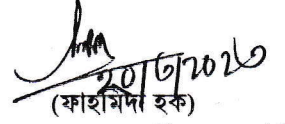 ২০/৬/২০২৩
(ফাহমিদা হক)